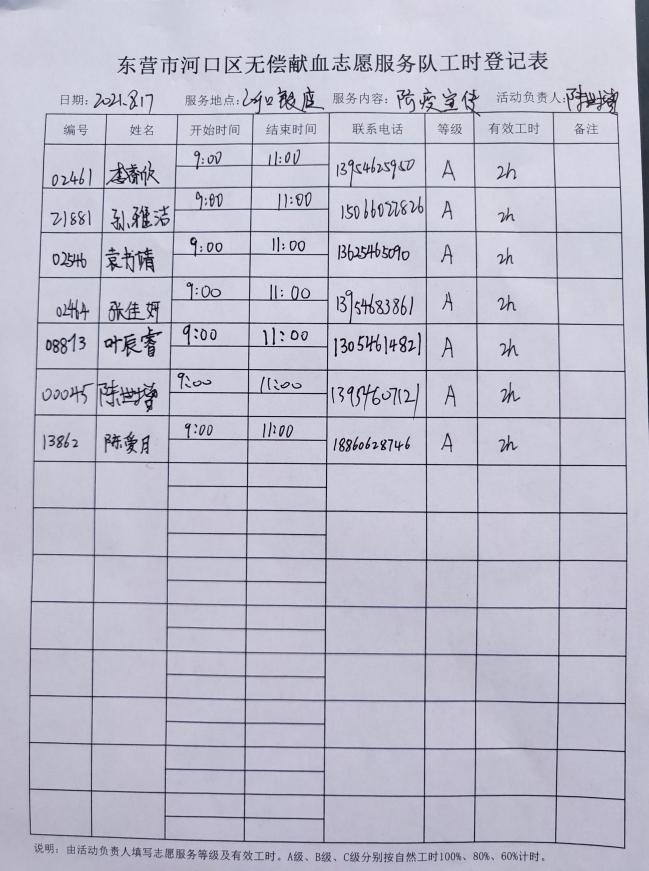 东营市河口区无偿献血志愿服务队工时登记表
日期: 2021.8.17 服务地点: 河口银座 服务内容: 防疫宣传 活动负责人: 陈
编号 姓名 开始时间 结束时间 联系电话 等级 有效工时 备注
02461 李睿欣 9:00 11:00 13954625950 A 2h
21881 孙雅洁 9:00 11:00 15066027826 A 2h
02546 袁书婧 9:00 11:00 13625465090 A 2h
02464 张佳妍 9:00 11:00 13954683861 A 2h
08813 叶辰睿 9:00 11:00 13054614821 A 2h
00045 陈 9:00 11:00 13954607121 A 2h
13862 陈爱月 9:00 11:00 18860628746 A 2h
说明: 由活动负责人填写志愿服务等级及有效工时。A级、B级、C级分别按自然工时100%、80%、60%计时。